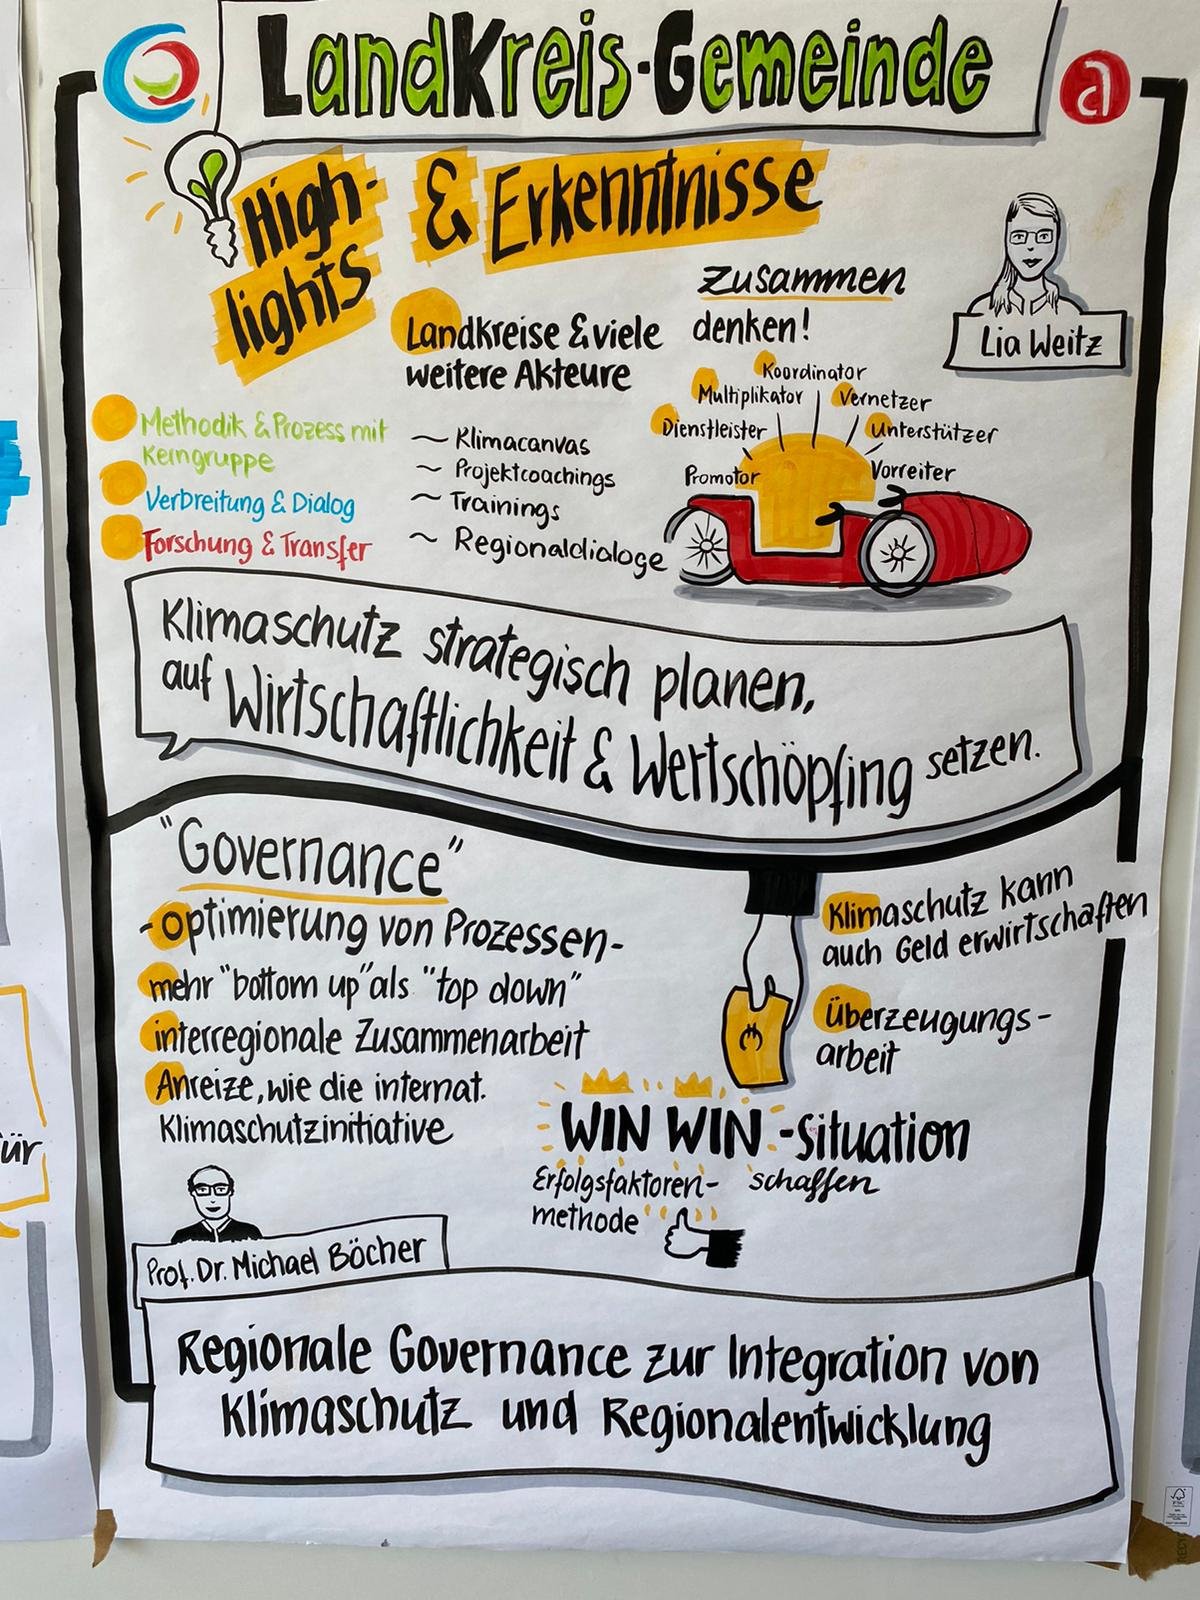 LandKreis-Gemeinde
a
High-
lights
& Erkenntnisse
Lia Weitz
Landkreise & viele
weitere Akteure
zusammen
denken!
Methodik & Prozess mit
Kerngruppe
Verbreitung & Dialog
Forschung & Transfer
~ Klimacanvas
~ Projektcoachings
~ Trainings
~ Regionaldialoge
Promotor
Dienstleister
Multiplikator
Koordinator
Vernetzer
Unterstützer
Vorreiter
Klimaschutz strategisch planen,
auf Wirtschaftlichkeit & Wertschöpfing setzen.
"Governance"
- Optimierung von Prozessen-
mehr "bottom up" als "top down"
interregionale Zusammenarbeit
Anreize, wie die internat.
Klimaschutzinitiative
Klimaschutz kann
auch Geld erwirtschaften
€
Überzeugungs-
arbeit
WIN WIN -Situation
schaffen
Erfolgsfaktoren-
methode
Prof. Dr. Michael Böcher
Regionale Governance zur Integration von
Klimaschutz und Regionalentwicklung
ür
FSC